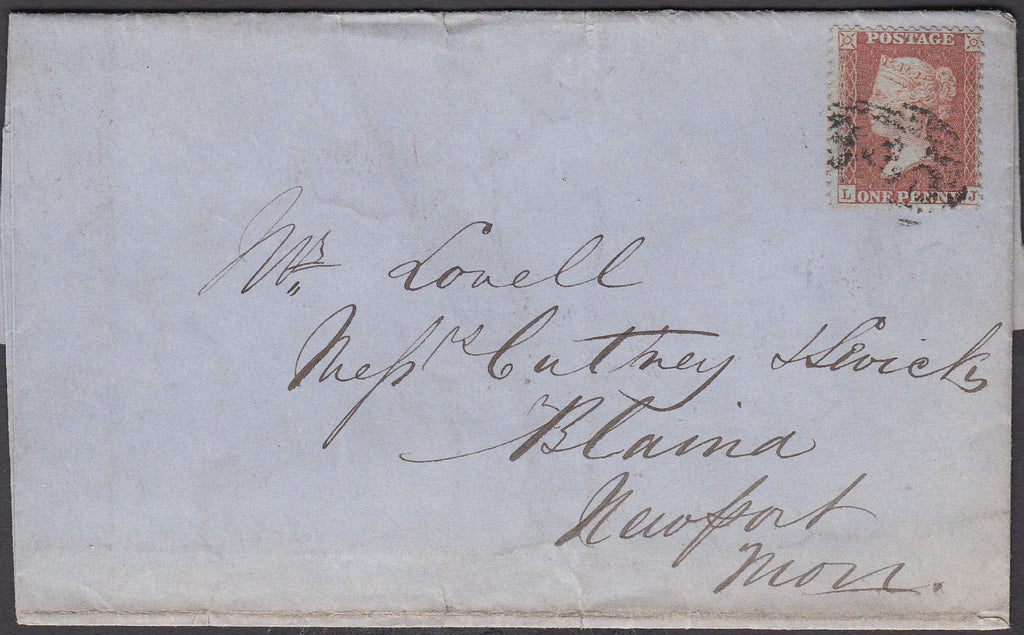 POSTAGE
L ONE PENNY J
Mr Lovell
Messrs Cuthey &
Blaina
Newport
Mon.